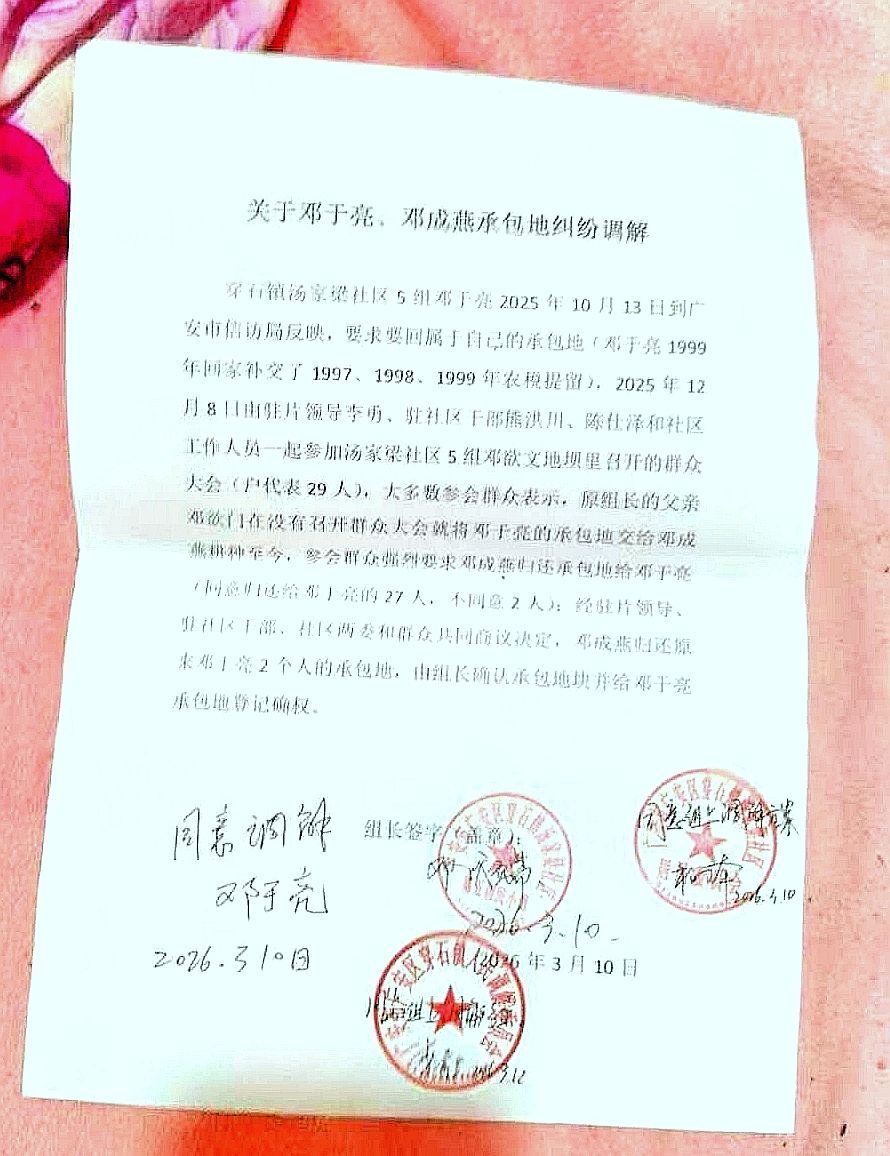 关于邓于亮、邓成燕承包地纠纷调解
穿石镇汤家梁社区5组邓于亮2025年10月13日到广
安市信访局反映，要求要回属于自己的承包地（邓于亮1999
年回家补交了1997、1998、1999年农税提留），2025年12
月8日由驻片领导李勇、驻社区干部熊洪川、陈仕泽和社区
工作人员一起参加汤家梁社区5组邓欲文地坝里召开的群众
大会（户代表29人），大多数参会群众表示，原组长的父亲
邓欲门在没有召开群众大会就将邓于亮的承包地交给邓成
燕耕种至今，参会群众强烈要求邓成燕归还承包地给邓于亮
（同意归还给邓于亮的27人，不同意2人）；经驻片领导、
驻社区干部、社区两委和群众共同商议决定，邓成燕归还原
来邓于亮2个人的承包地，由组长确认承包地块并给邓于亮
承包地登记确权。
同意调解
邓于亮
2026.3月10日
组长签字（盖章）：
邓
2026.3.10
2026年3月10日
同意组上调解方案
2026.3.10
广安区穿石镇人民调解委员会
3.12